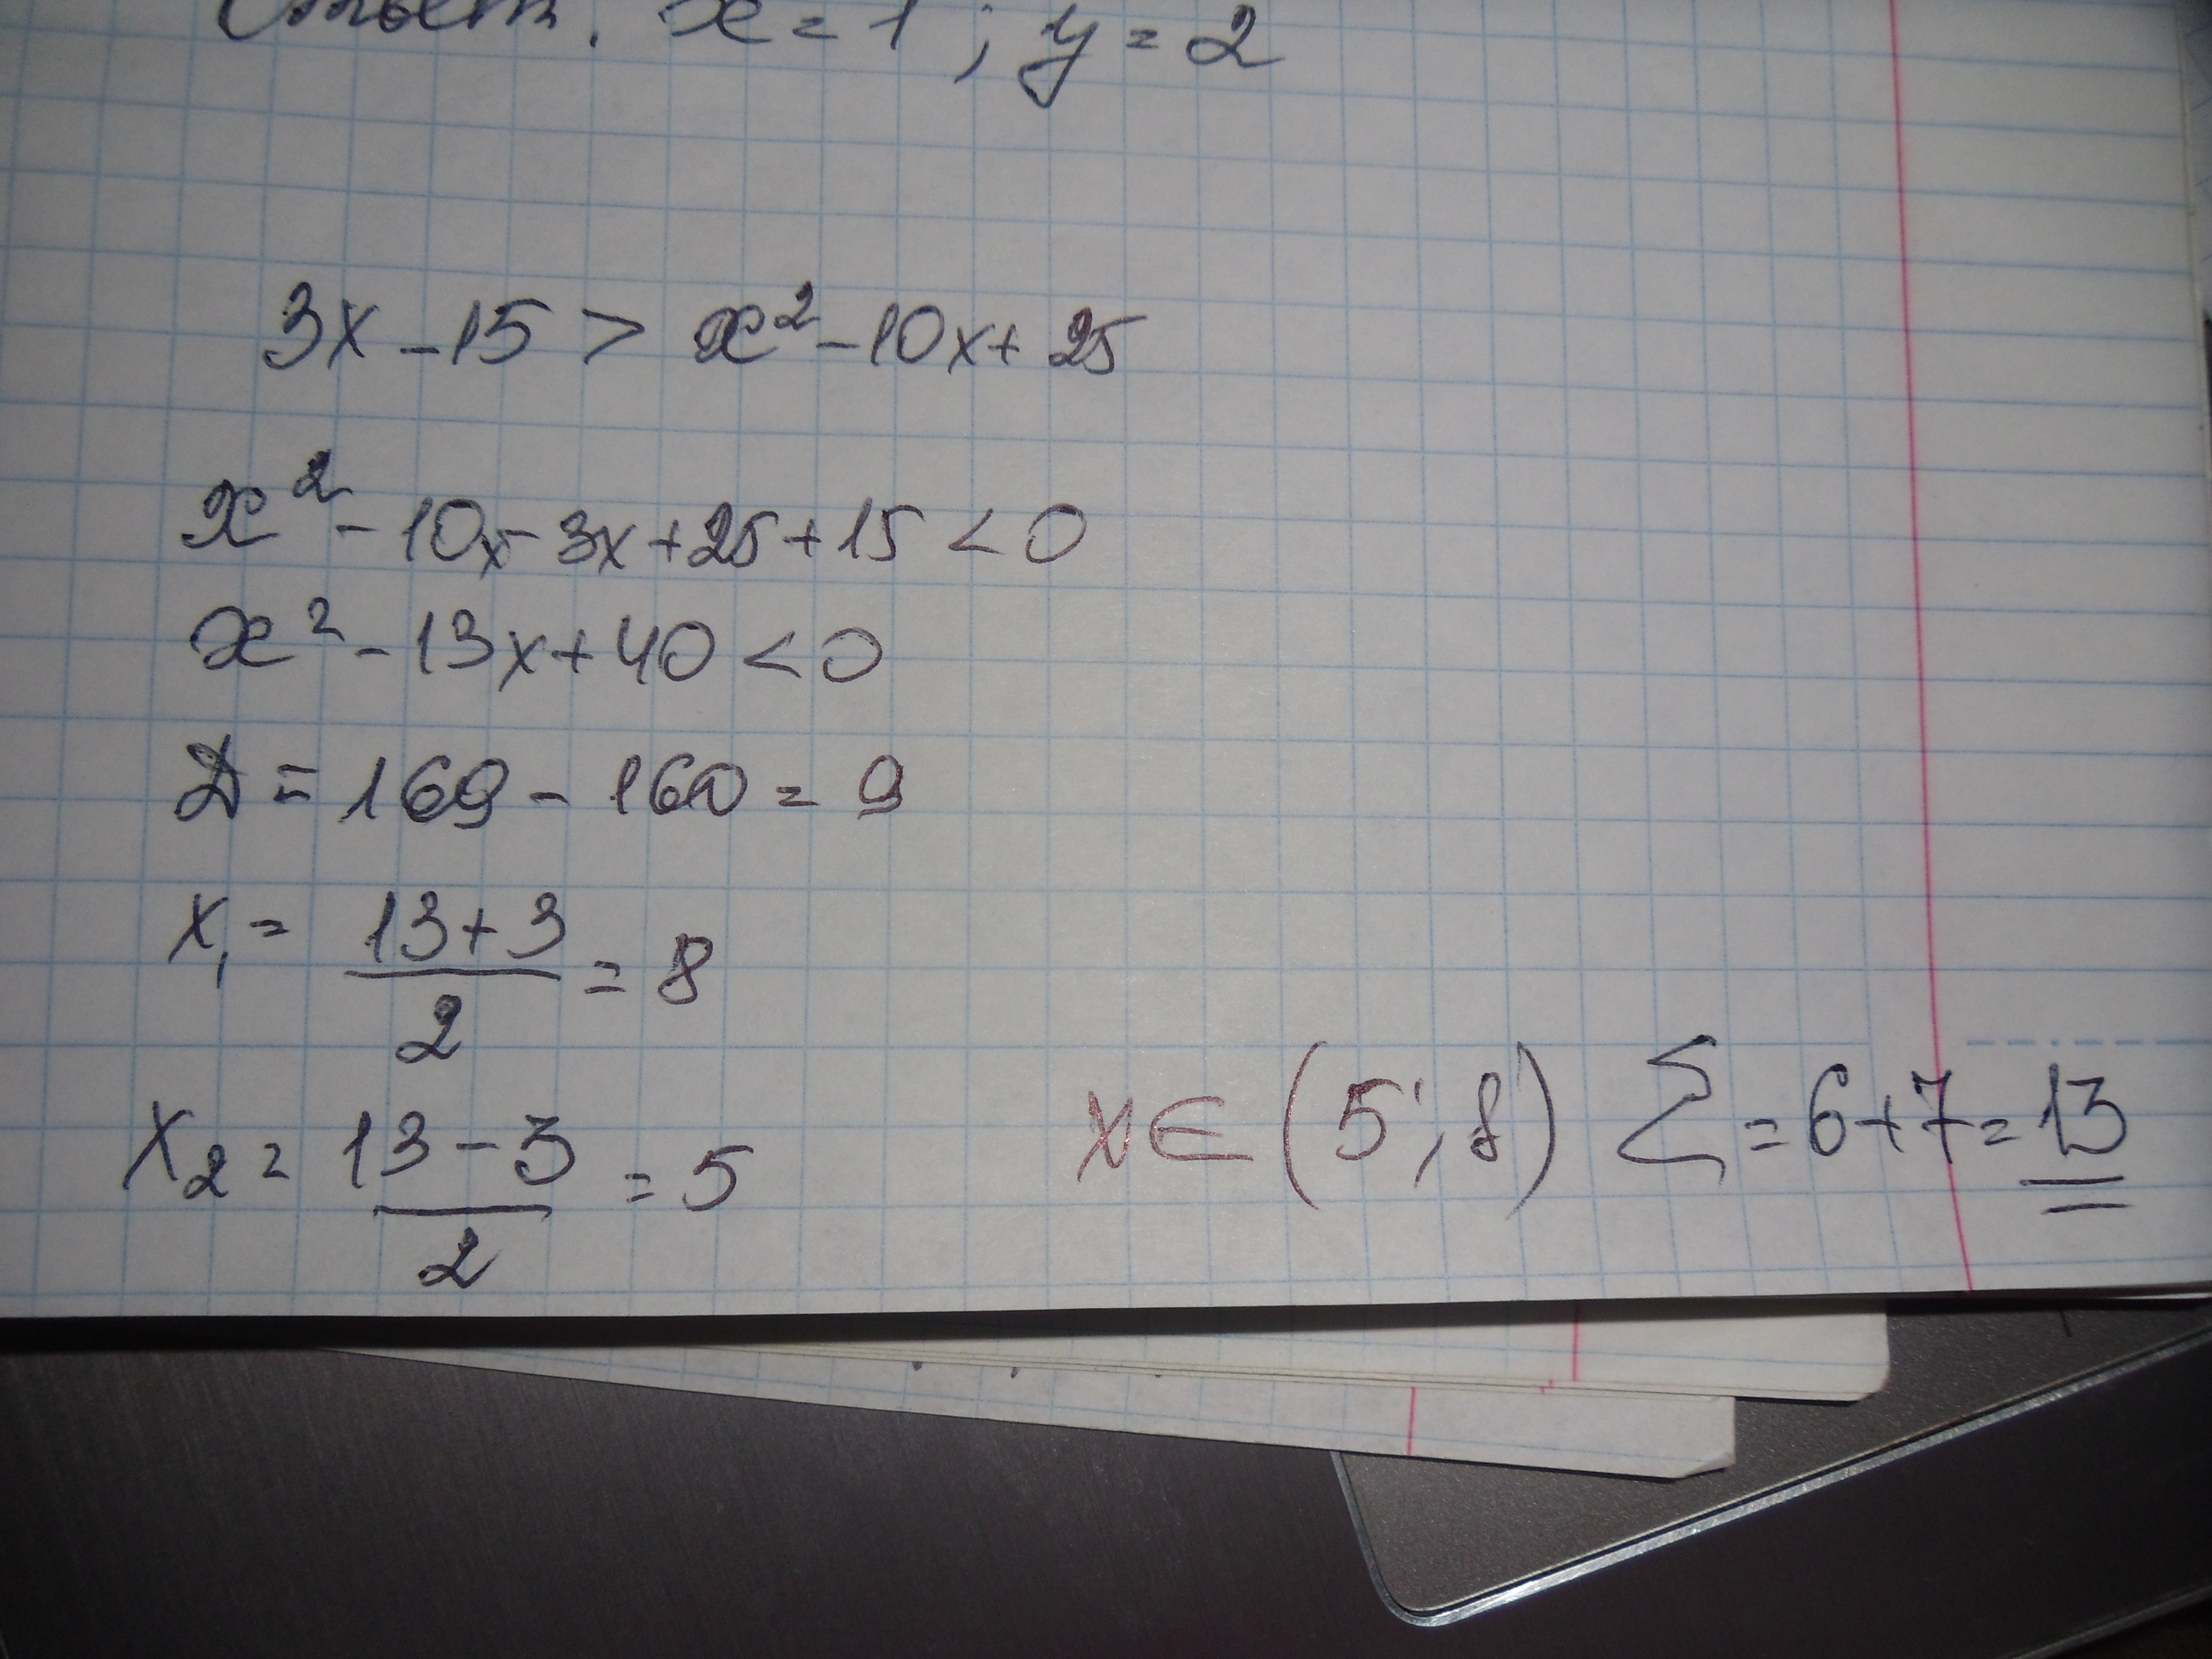 Ответ. x = 1 ; y = 2
3x - 15 > x² - 10x + 25
x² - 10x - 3x + 25 + 15 < 0
x² - 13x + 40 < 0
D = 169 - 160 = 9
x₁ = (13 + 3)/2 = 8
x₂ = (13 - 3)/2 = 5
x ∈ (5; 8) Σ = 6 + 7 = 13